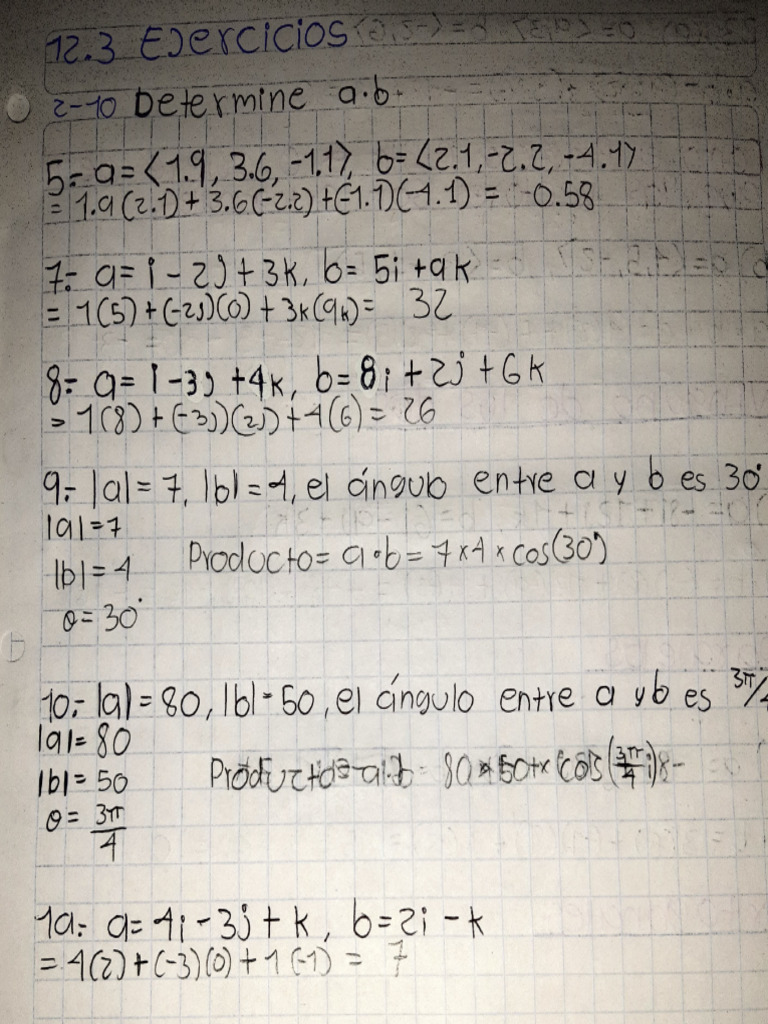 12.3 Ejercicios
2-10 Determine a·b.
5.- a=⟨1.9, 3.6, -1.1⟩, b=⟨2.1, -2.2, -4.1⟩
= 1.9(2.1)+3.6(-2.2)+(-1.1)(-4.1) = 0.58
7.- a=i-2j+3k, b=5i+9k
= 1(5)+(-2j)(0)+3k(9k)= 32
8.- a=i-3j+4k, b=8i+2j+6k
= 1(8)+(-3j)(2j)+4(6)= 26
9.- |a|=7, |b|=4, el ángulo entre a y b es 30°
|a|=7
Producto= a·b=7×4×cos(30°)
|b|=4
θ=30°
10.- |a|=80, |b|=50, el ángulo entre a y b es 3π/4
|a|=80
|b|=50
Producto= a·b= 80×50×cos(3π/4)
θ=3π/4
19.- a=4i-3j+k, b=2i-k
=4(2)+(-3)(0)+1(-1) = 7